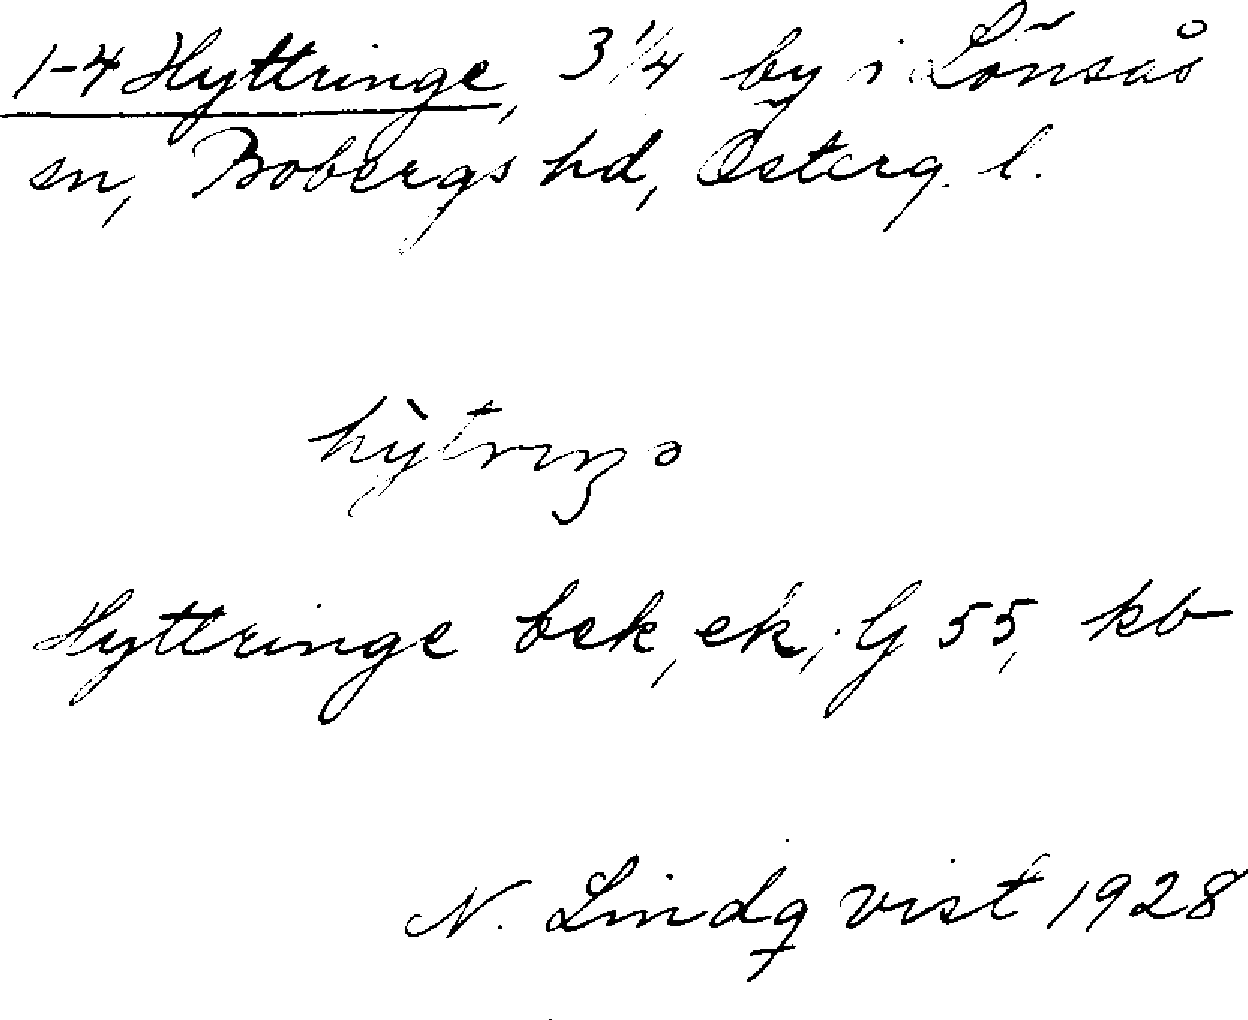 1-4 Hyttringe, 3 1/4 by i Lönsås
sn, Bobergs hd, Österg. l.
hỳtrıŋə
Hyttringe bek, ek, G 55, kb
N. Lindqvist 1928